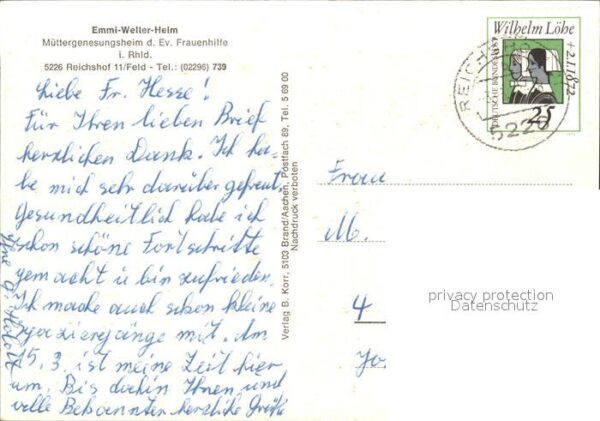 Emmi-Welter-Heim
Müttergenesungsheim d. Ev. Frauenhilfe
i. Rhld.
5226 Reichshof 11/Feld - Tel.: (02296) 739
Liebe Fr. Hesse!
Für Ihren lieben Brief
herzlichen Dank. Ich ha-
be mich sehr darüber gefreut.
Gesundheitlich habe ich
schon schöne Fortschritte
gemacht u bin zufrieden.
Ich mache auch schon kleine
Spaziergänge mit. Am
15. 3. ist meine Zeit hier
um. Bis dahin Ihnen und
alle Bekannten herzliche Grüße
Ihre
Verlag B. Korr, 5103 Brand/Aachen, Postfach 89, Tel. 5 69 00
Nachdruck verboten
Wilhelm Löhe
+ 2.1.1872
DEUTSCHE BUNDESPOST
25
REICHSHOF
5226
Frau
M.
4
privacy protection
Datenschutz